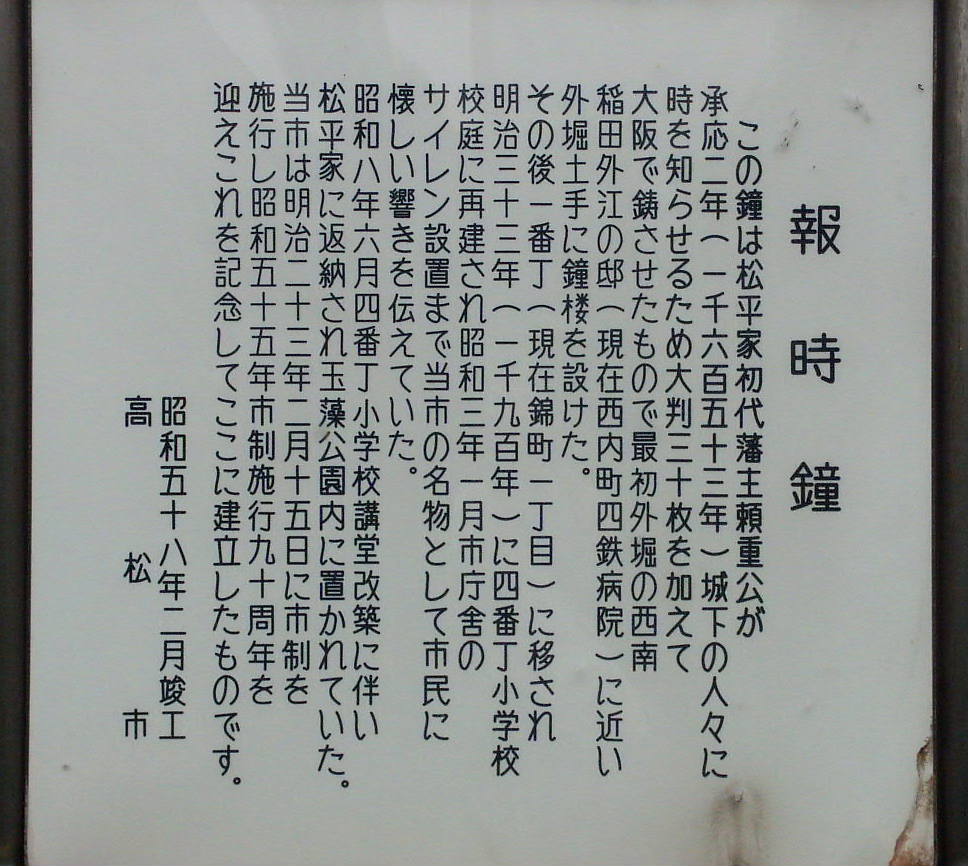 報時鐘
この鐘は松平家初代藩主頼重公が
承応二年(一千六百五十三年)城下の人々に
時を知らせるため大判三十枚を加えて
大阪で鋳させたもので最初外堀の西南
稲田外江の邸(現在西内町四鉄病院)に近い
外堀土手に鐘楼を設けた。
その後一番丁(現在錦町一丁目)に移され
明治三十三年(一千九百年)に四番丁小学校
校庭に再建され昭和三年一月市庁舎の
サイレン設置まで当市の名物として市民に
懐しい響きを伝えていた。
昭和八年六月四番丁小学校講堂改築に伴い
松平家に返納され玉藻公園内に置かれていた。
当市は明治二十三年二月十五日に市制を
施行し昭和五十五年市制施行九十周年を
迎えこれを記念してここに建立したものです。
昭和五十八年二月竣工
高松市